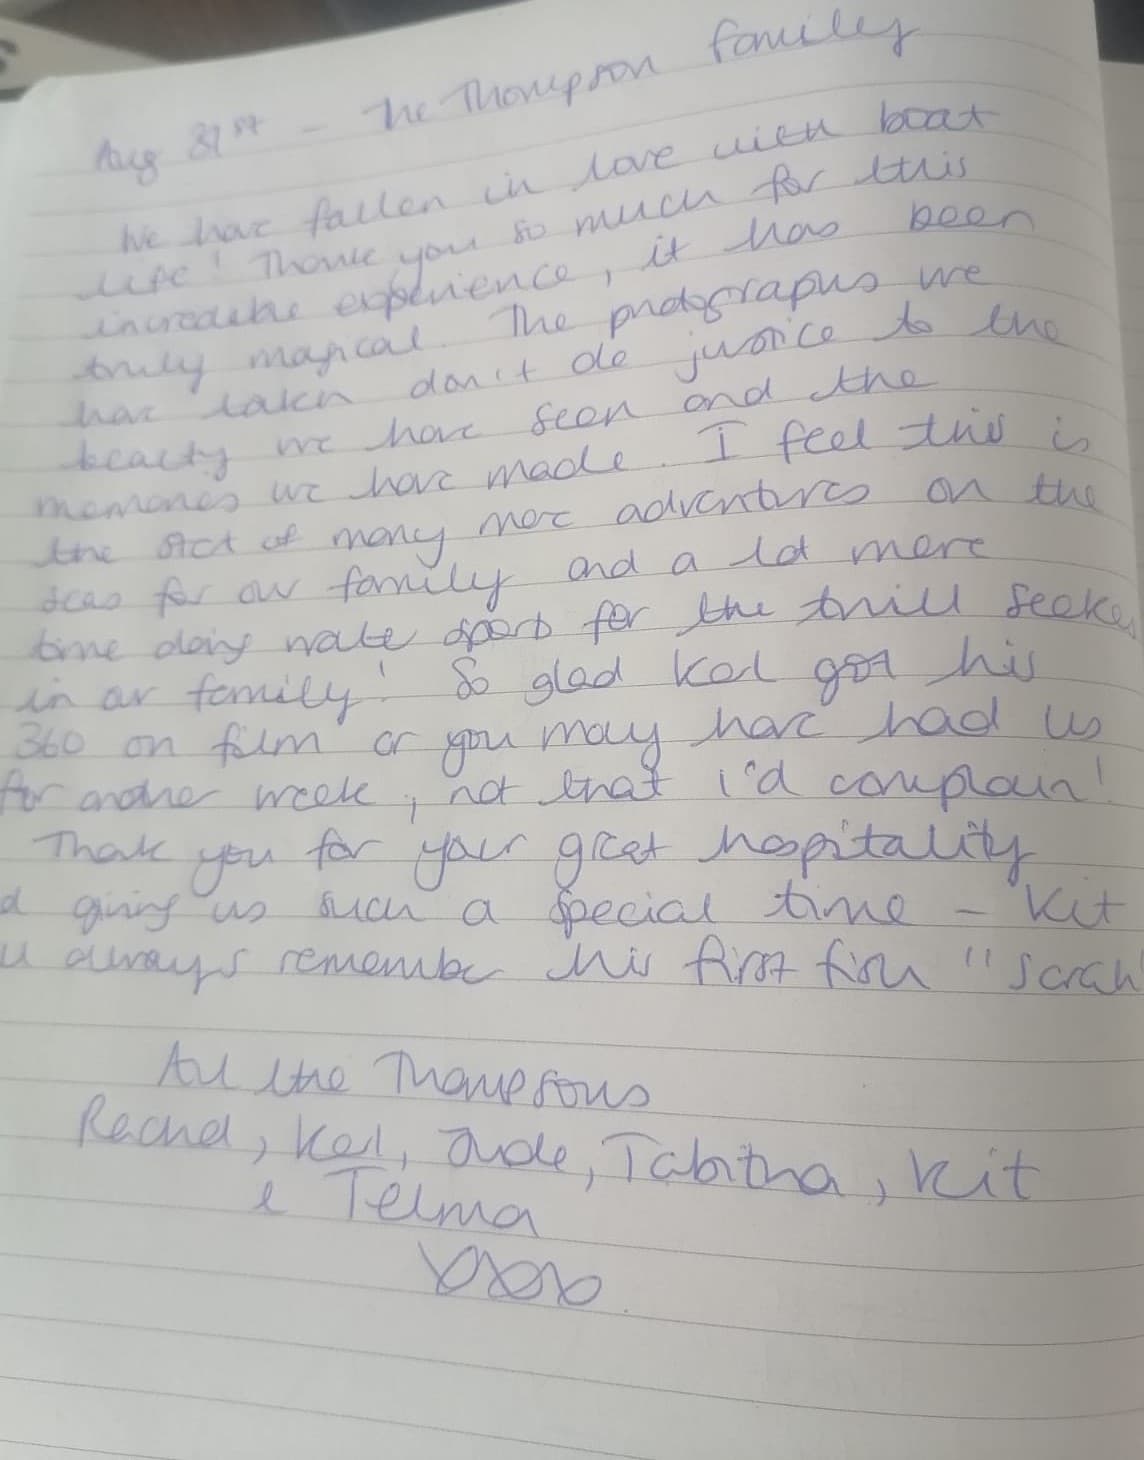 Aug 31st - The Thompson family
We have fallen in love with boat
life! Thank you so much for this
incredible experience, it has been
truly magical. The photographs we
have taken don't do justice to the
beauty we have seen and the
memories we have made. I feel this is
the start of many more adventures on the
seas for our family and a lot more
time doing water sports for the thrill seeke
in our family! So glad Kal got his
360 on film or you may have had us
for another week, not that i'd complain!
Thank you for your great hospitality
d giving us such a special time - Kit
ll always remember his first fish "Sarah
All the Thompsons
Rachel, Kal, Jude, Tabitha, Kit
& Telma
xoxo